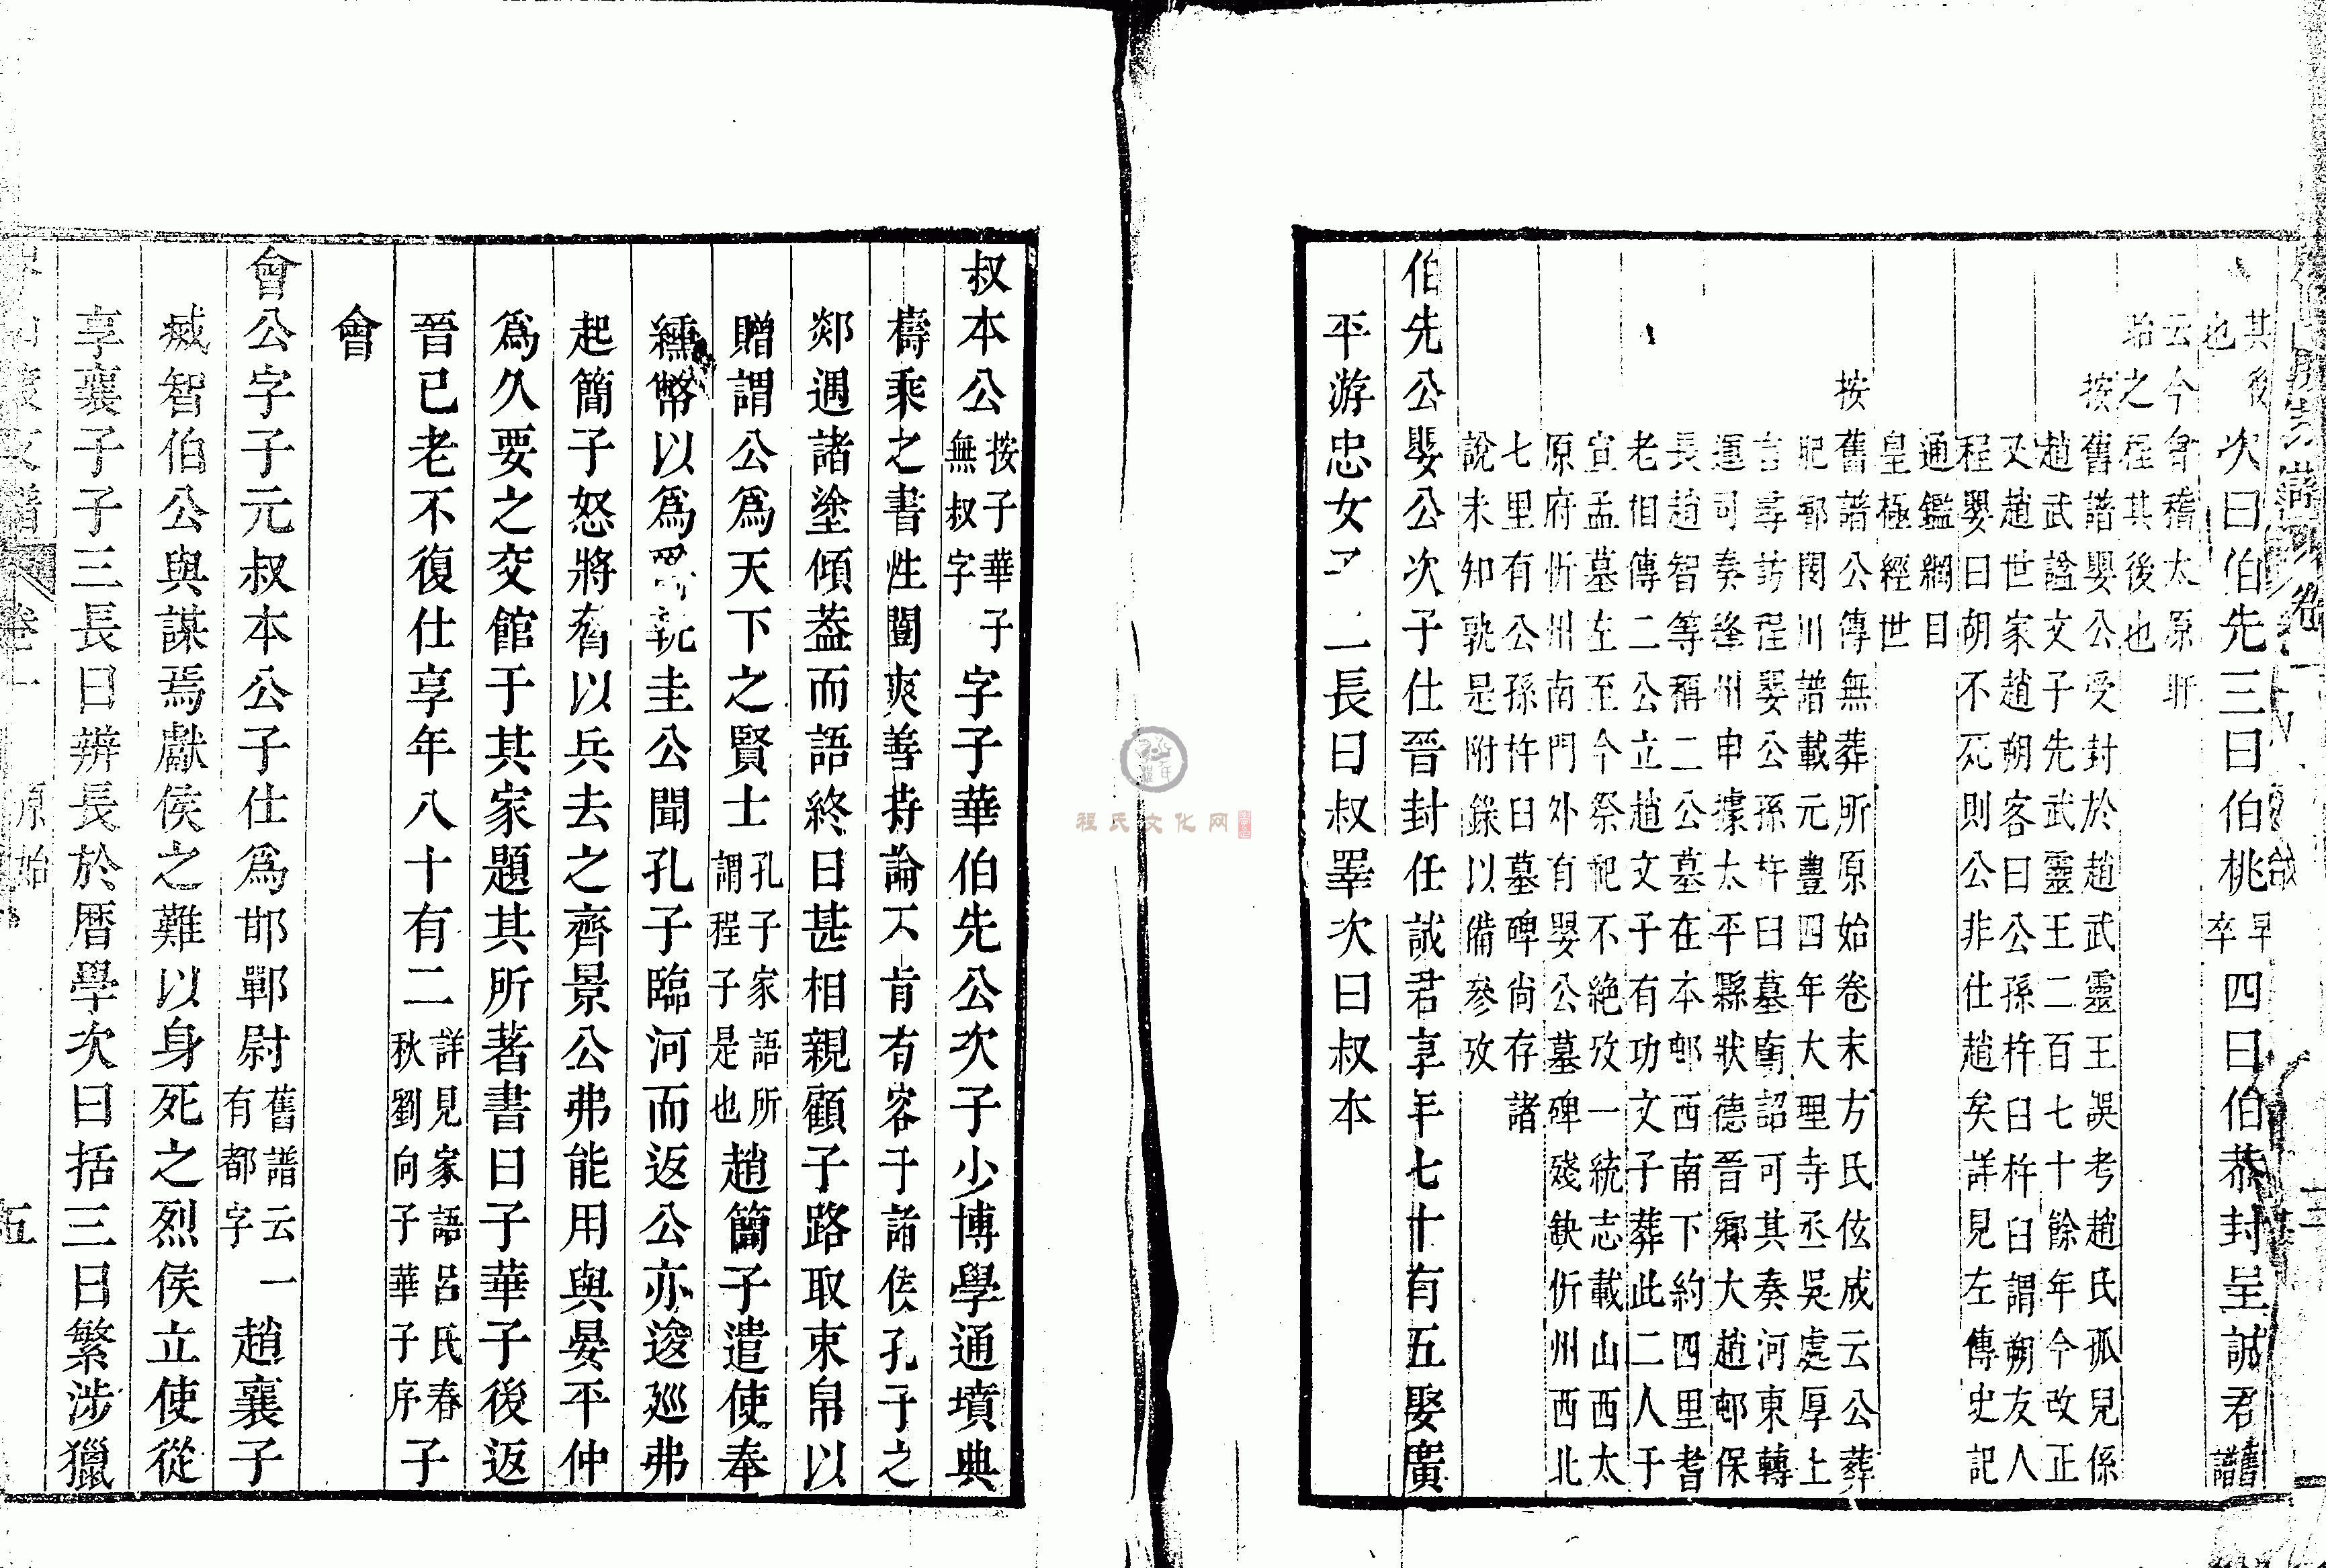 次曰伯先三曰伯桃早卒四曰伯恭封呈誠君舊譜
其後
也
云今會稽太原
之程其後也
按舊譜嬰公受封於趙武靈王誤考趙氏孤兒係
趙武諡文子先武靈王二百七十餘年今改正
又趙世家趙朔客曰公孫杵臼杵臼謂朔友人
程嬰曰胡不死則公非仕趙矣詳見左傳史記
通鑑綱目
皇極經世
按舊譜公傳無葬所原始卷末方氏伭成云公葬
祀鄆閔川譜載元豐四年大理寺丞吳處厚上
言尋訪程嬰公孫杵臼墓廟詔可其奏河東轉
運司奏絳州申據太平縣狀德晉鄉大趙邨保
長趙智等稱二公墓在本邨西南下約四里耆
老相傳二公立趙文子有功文子葬此二人于
宣孟墓左至今祭祀不絶攷一統志載山西太
原府忻州南門外有嬰公墓碑殘缺忻州西北
七里有公孫杵臼墓碑尚存諸
說未知孰是附錄以備參攷
伯先公嬰公次子仕晉封任誠君享年七十有五娶廣
平游忠女子二長曰叔睪次曰叔本
叔本公按子華子無叔字字子華伯先公次子少博學通墳典
檮乘之書性闓爽善持論不肯有容于諸侯孔子之
郯遇諸塗傾葢而語終日甚相親顧子路取束帛以
贈謂公爲天下之賢士孔子家語所謂程子是也趙簡子遣使奉
纁幣以爲爵執圭公聞孔子臨河而返公亦逡廵弗
起簡子怒將脅以兵去之齊景公弗能用與晏平仲
爲久要之交館于其家題其所著書曰子華子後返
晉已老不復仕享年八十有二詳見家語呂氏春秋劉向子華子序子
會
會公字子元叔本公子仕爲邯鄲尉舊譜云一有都字趙襄子
臧智伯公與謀焉獻侯之難以身死之烈侯立使從
享襄子子三長曰辨長於曆學次曰括三曰繁涉獵
卷一 原始
五
程氏文化网